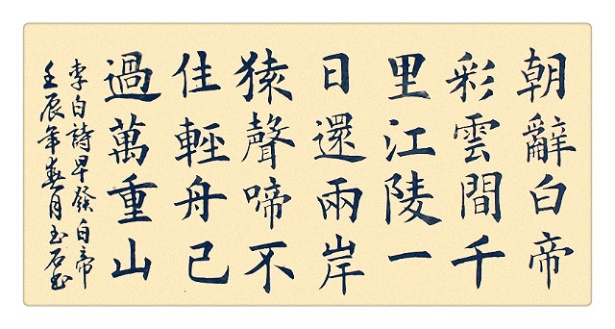 朝辭白帝
彩雲間千
里江陵一
日還兩岸
猿聲啼不
住輕舟已
過萬重山
李白詩早發白帝
壬辰年春月玉石書